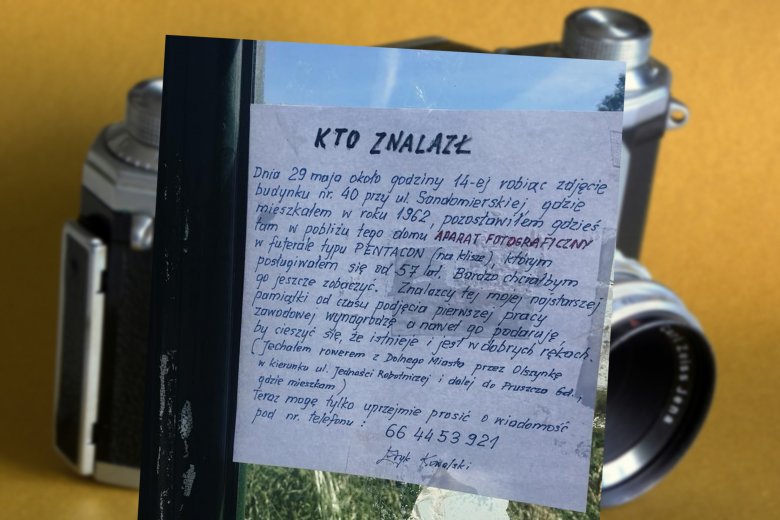 KTO ZNALAZŁ
Dnia 29 maja około godziny 14-ej robiąc zdjęcie
budynku nr. 40 przy ul. Sandomierskiej, gdzie
mieszkałem w roku 1962, pozostawiłem gdzieś
tam w pobliżu tego domu APARAT FOTOGRAFICZNY
w futerale typu PENTACON (na klisze), którym
posługiwałem się od 57 lat. Bardzo chciałbym
go jeszcze zobaczyć. Znalazcy tej mojej najstarszej
pamiątki od czasu podjęcia pierwszej pracy
zawodowej wynagrodzę, a nawet go podaruję,
by cieszyć się, że istnieje i jest w dobrych rękach.
(Jechałem rowerem z Dolnego Miasta przez Olszynkę
w kierunku ul. Jedności Robotniczej i dalej do Pruszcza Gd.,
gdzie mieszkam)
Teraz mogę tylko uprzejmie prosić o wiadomość
pod nr. telefonu : 66 44 53 921
Kowalski
Carl Zeiss Jena